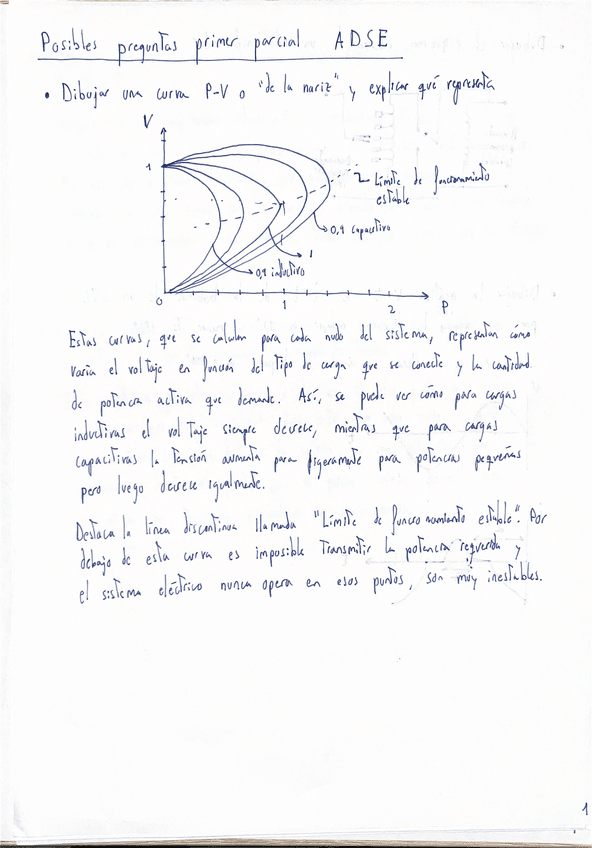 Posibles preguntas primer parcial ADSE
• Dibujar una curva P-V o "de la nariz" y explicar qué representa
V
1
Límite de funcionamiento
estable
0,9 capacitivo
1
0,9 inductivo
0
1
2
P
Estas curvas, que se calculan para cada nudo del sistema, representan cómo
varía el voltaje en función del tipo de carga que se conecte y la cantidad
de potencia activa que demande. Así, se puede ver cómo para cargas
inductivas el voltaje siempre decrece, mientras que para cargas
capacitivas la tensión aumenta para ligeramente para potencias pequeñas
pero luego decrece igualmente.
Destaca la línea discontinua llamada "Límite de funcionamiento estable". Por
debajo de esta curva es imposible transmitir la potencia requerida y
el sistema eléctrico nunca opera en esos puntos, son muy inestables.
1